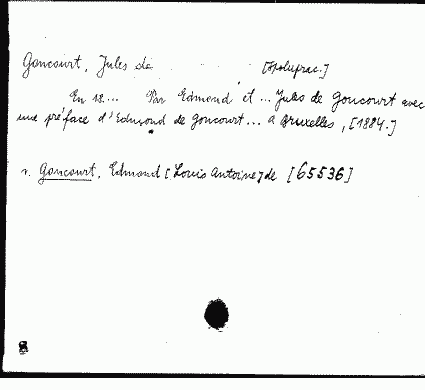 Goncourt, Jules de [Spoluprac.]
En 18... Par Edmond et ... Jules de Goncourt avec
une préface d'Edmond de Goncourt... a Bruxelles, [1884.]
v. Goncourt, Edmond [Louis Antoine] de [65536]
8